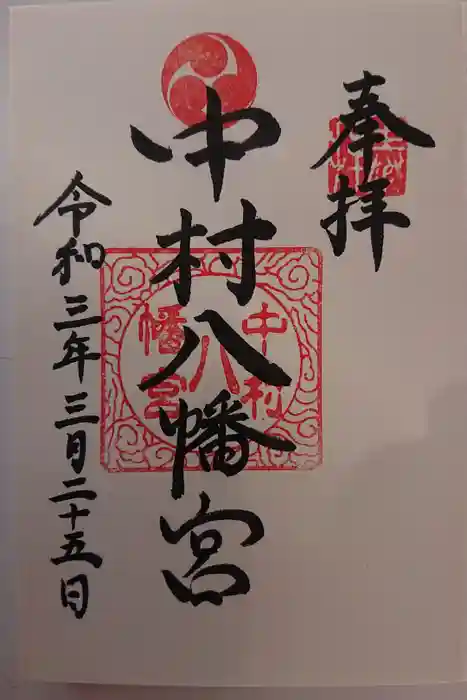 奉拝
中村八幡宮
中村八幡宮
令和三年三月二十五日